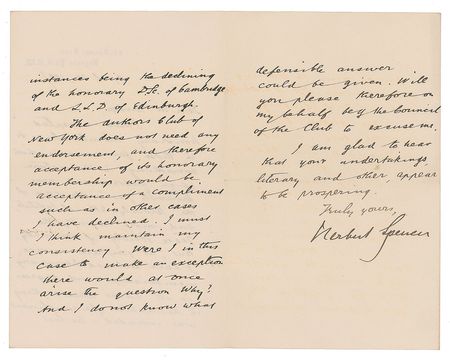 instances being the declining
of the honorary D.Sc. of Cambridge
and L.L.D. of Edinburgh.
The Authors Club of
New York does not need any
endorsement, and therefore
acceptance of its honorary
membership would be
acceptance of a compliment
such as in other cases
I have declined. I must
I think maintain my
consistency. Were I in this
case to make an exception
there would at once
arise the question Why?
And I do not know what
defensible answer
could be given. Will
you please therefore on
my behalf beg the Council
of the Club to excuse me.
I am glad to hear
that your undertakings,
literary and other appear
to be prospering.
Truly yours,
Herbert Spencer